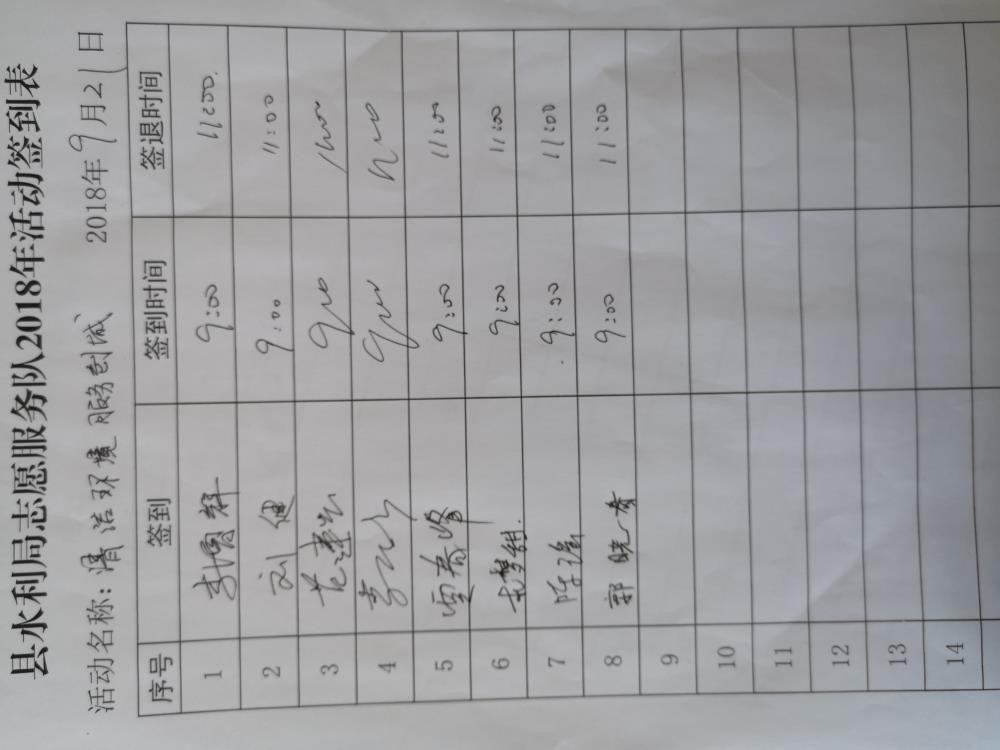 县水利局志愿服务队2018年活动签到表
活动名称：清洁环境 服务创城 2018年9月21日
序号 签到 签到时间 签退时间
1 9:00 11:00.
2 刘健 9:00 11:00
3 9:00 11:00
4 9:00 11:00
5 雷春峰 9:00 11:00
6 9:00 11:00
7 陈瑜 9:00 11:00
8 郭晓青 9:00 11:00
9
10
11
12
13
14